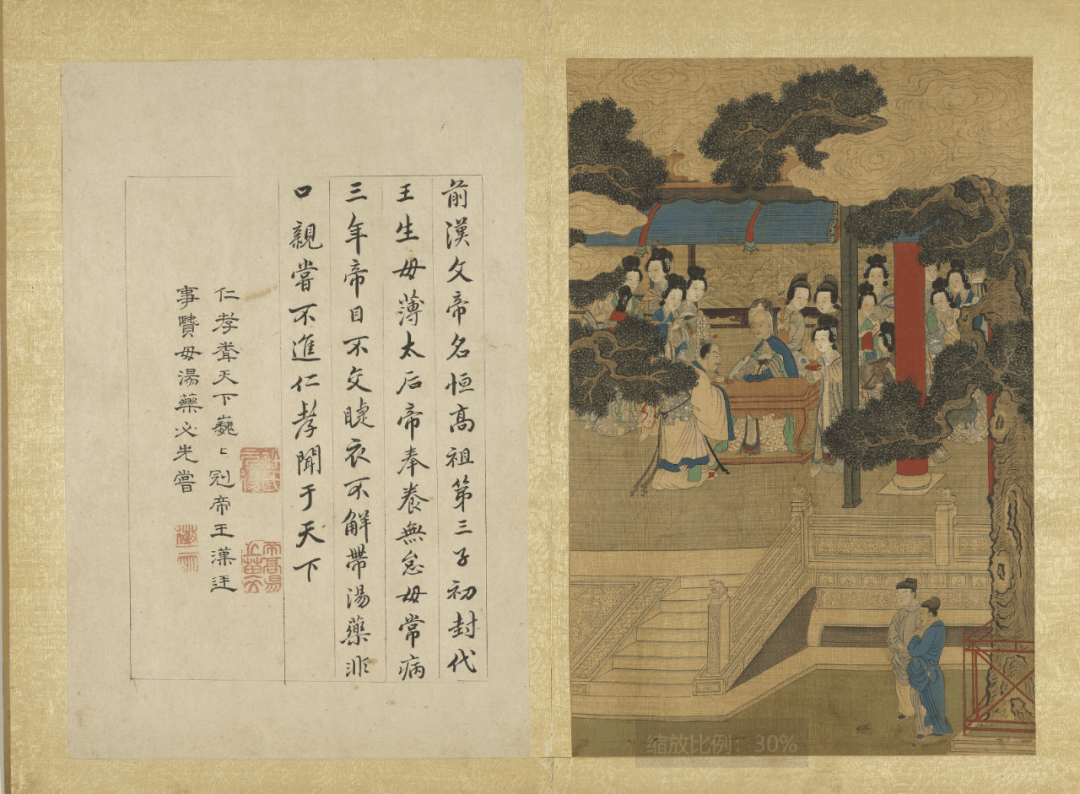 前漢文帝名恒高祖第三子初封代
王生母薄太后帝奉養無怠母常病
三年帝目不交睫衣不解帶湯藥非
口親嘗不進仁孝聞于天下
仁孝天下巍〻冠帝王漢廷
事賢母湯藥必先嘗
缩放比例：30%